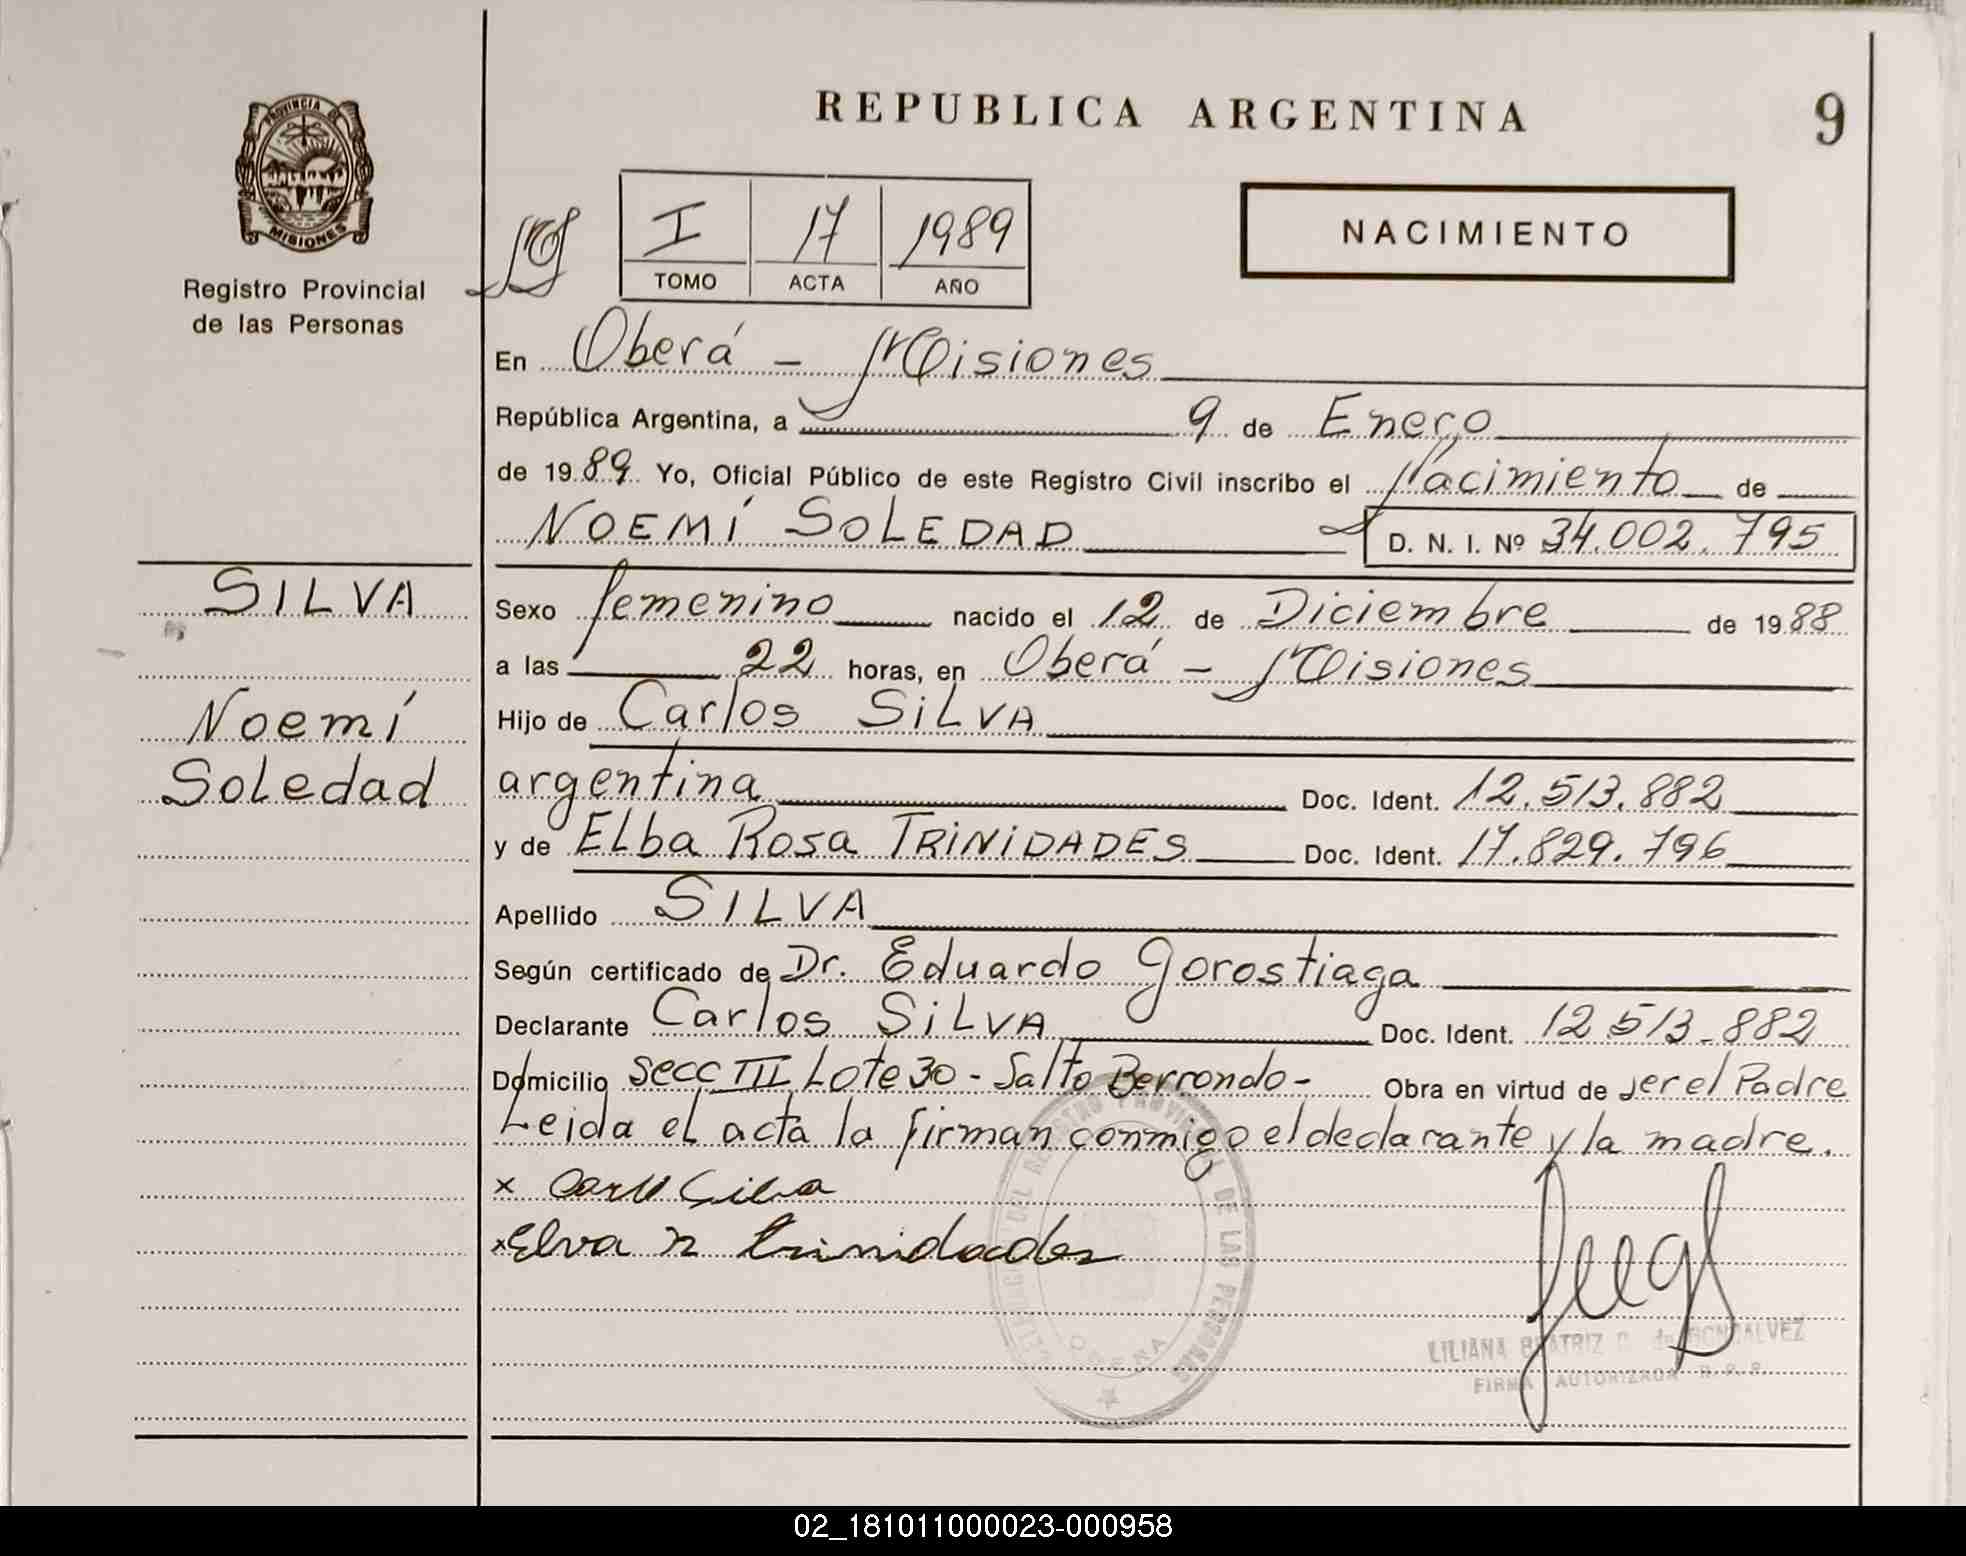 REPUBLICA ARGENTINA
9
PROVINCIA DE
MISIONES
Registro Provincial
de las Personas
I 17 1989
TOMO ACTA AÑO
NACIMIENTO
En Oberá - Misiones
República Argentina, a 9 de Enero
de 1989 Yo, Oficial Público de este Registro Civil inscribo el Nacimiento de
NOEMÍ SOLEDAD D. N. I. Nº 34.002.795
SILVA
Noemí
Soledad
Sexo femenino nacido el 12 de Diciembre de 1988
a las 22 horas, en Oberá - Misiones
Hijo de Carlos SILVA
argentina Doc. Ident. 12.513.882
y de Elba Rosa TRINIDADES Doc. Ident. 17.829.796
Apellido SILVA
Según certificado de Dr. Eduardo Gorostiaga
Declarante Carlos SILVA Doc. Ident. 12 513-882
Domicilio Secc III Lote 30 - Salto Berrondo - Obra en virtud de ser el Padre
Leida el acta la firman conmigo el declarante y la madre.
x Carlos Silva
x Elva R trinidades
DEL REGISTRO PROVINCIAL DE LAS PERSONAS
OBERA
LILIANA BEATRIZ de GONCALVEZ
FIRMA AUTORIZADA R.P.P.
02_181011000023-000958